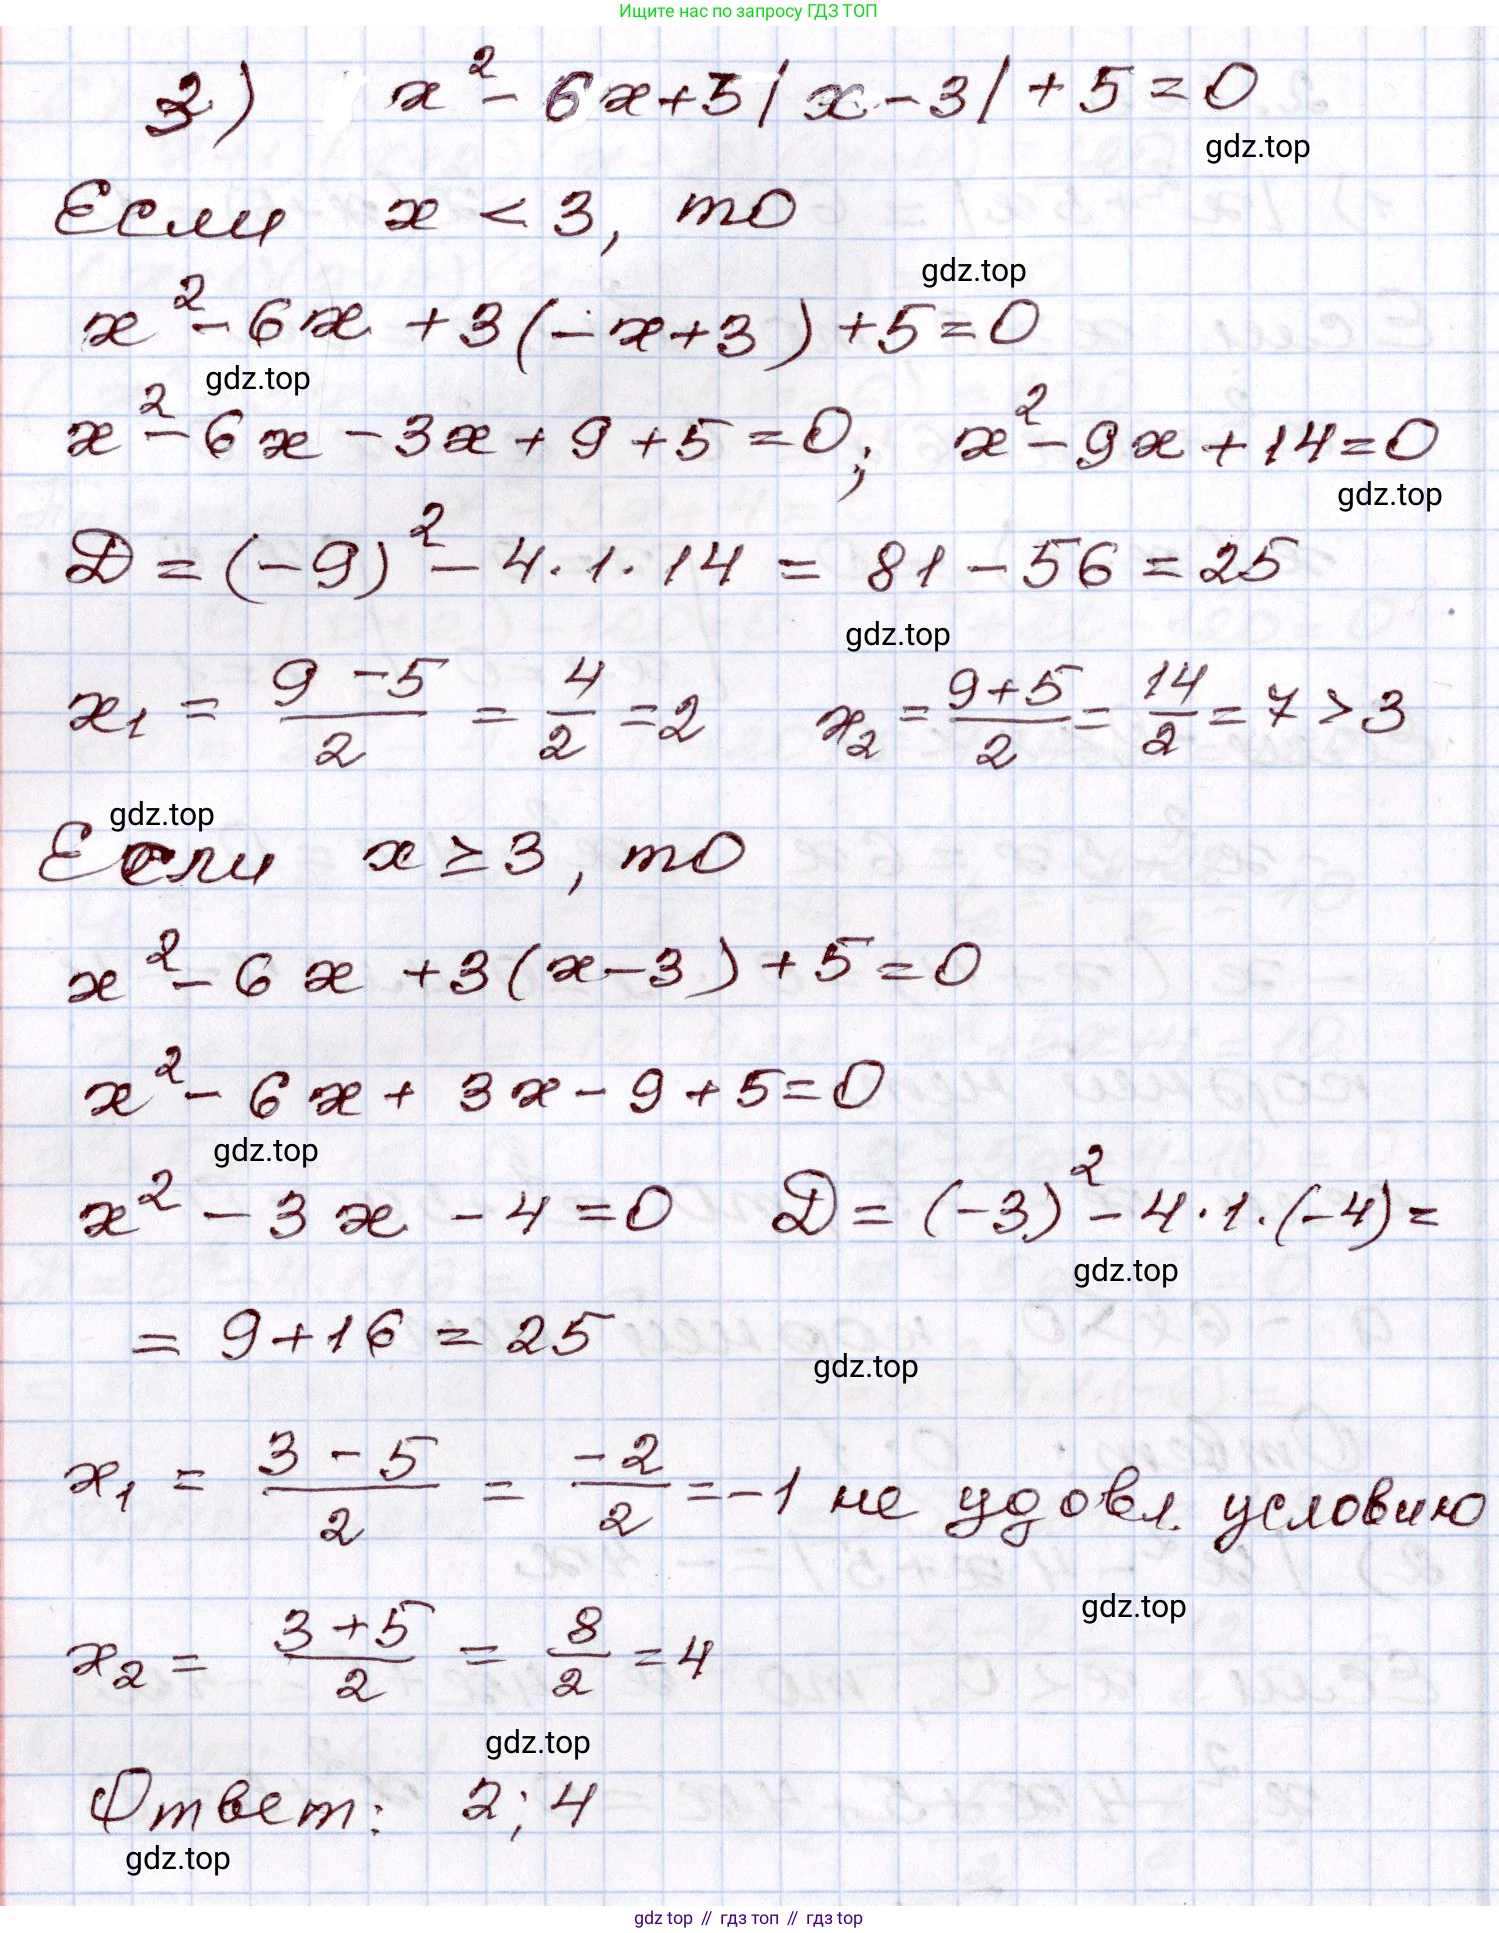 Ищите нас по запросу ГДЗ ТОП
3) x² - 6x + 5|x - 3| + 5 = 0
gdz.top
Если x < 3, то
gdz.top
x² - 6x + 3(-x + 3) + 5 = 0
gdz.top
x² - 6x - 3x + 9 + 5 = 0; x² - 9x + 14 = 0
gdz.top
D = (-9)² - 4·1·14 = 81 - 56 = 25
gdz.top
x₁ = (9 - 5)/2 = 4/2 = 2 x₂ = (9 + 5)/2 = 14/2 = 7 > 3
gdz.top
Если x ≥ 3, то
x² - 6x + 3(x - 3) + 5 = 0
x² - 6x + 3x - 9 + 5 = 0
gdz.top
x² - 3x - 4 = 0 D = (-3)² - 4·1·(-4) =
gdz.top
= 9 + 16 = 25
gdz.top
x₁ = (3 - 5)/2 = -2/2 = -1 не удовл. условию
gdz.top
x₂ = (3 + 5)/2 = 8/2 = 4
gdz.top
Ответ: 2; 4
gdz.top
gdz top // гдз топ // гдз top